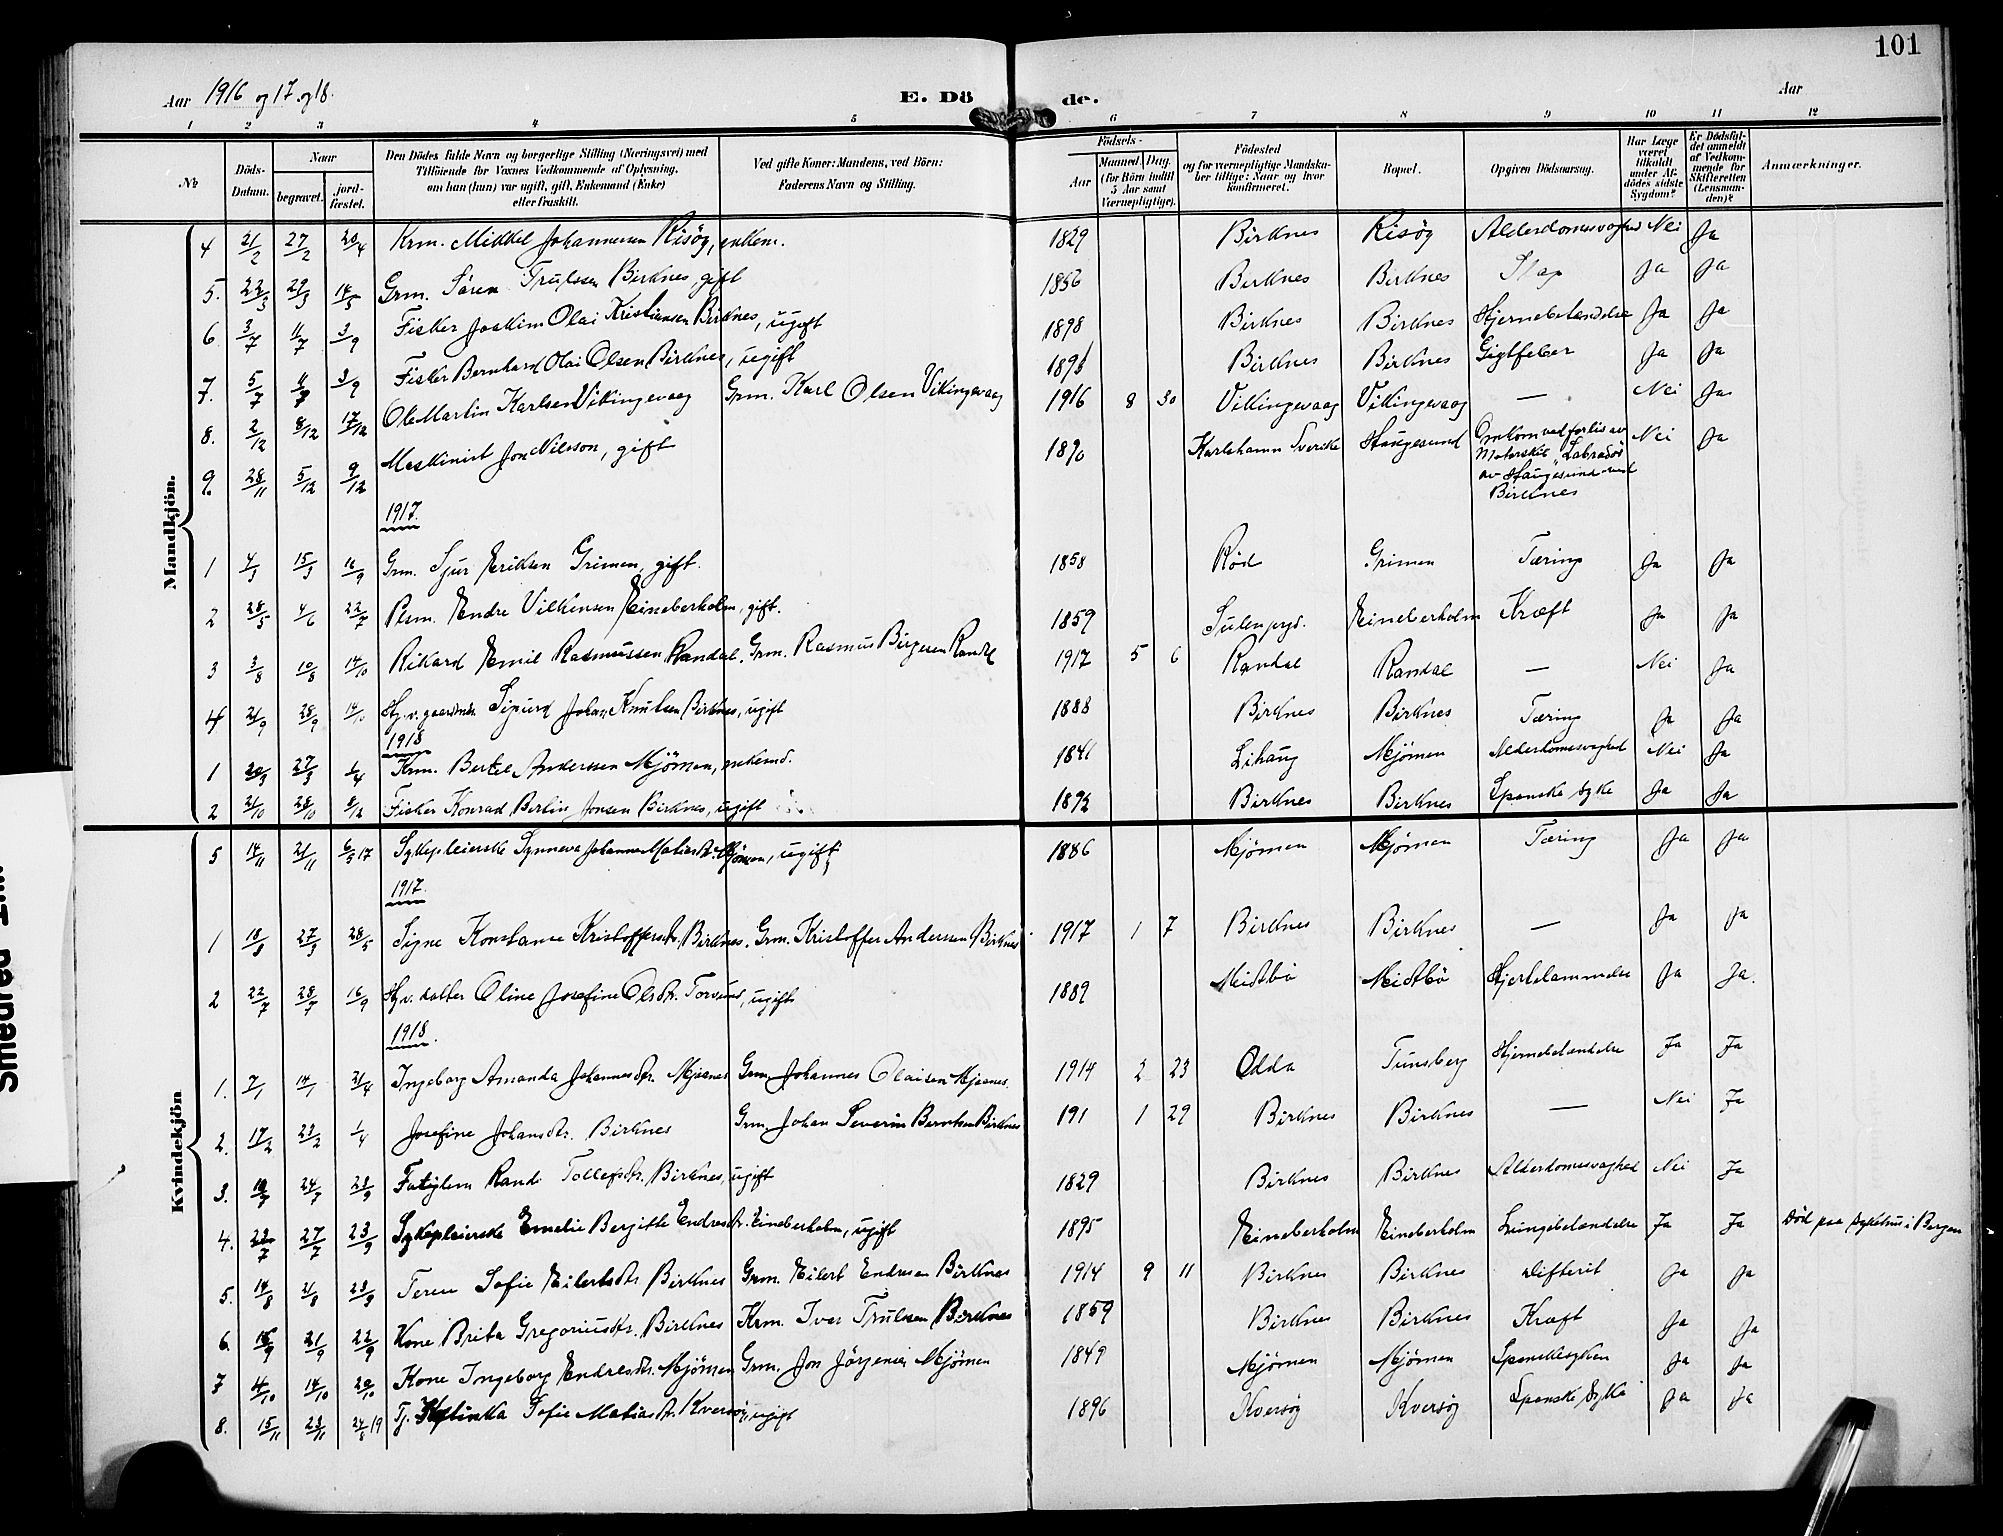 101
Aar 1916 og 17. og 18.
E. Dö de.
Aar
1 2 3 4 5 6 7 8 9 10 11 12
№
Döds-Datum.
Naar
begravet.
jord-fæstet.
Den Dödes fulde Navn og borgerlige Stilling (Næringsvei) med
Tilföiende for Voxnes Vedkommende af Oplysning,
om han (hun) var ugift, gift, Enkemand (Enke)
eller fraskilt.
Ved gifte Koner: Mandens, ved Börn:
Faderens Navn og Stilling.
Födsels-
Aar
Maaned. Dag.
(for Börn indtil 5 Aar samt Værnepligtige).
Födested
og for værnepligtige Mandskaber tillige: Naar og hvor konfirmeret.
Bopæl.
Opgiven Dödsaarsag.
Har Læge været tilkaldt under Afdödes sidste Sygdom?
Er Dödsfaldet anmeldt af Vedkommende for Skifteretten (Lensmanden)?
Anmærkninger.
Mandkjön.
4 21/2 27/2 20/4 Krm. Mikkel Johannesen Risög, enkem. 1829 Birknes Risög Alderdomsvaghed Nei Ja
5. 22/3 29/3 14/5 Grm. Sören Trulssen Birknes, gift 1856 Birknes Birknes Slag Ja Ja
6 3/7 11/7 3/9 Fisker Joakim Olai Kristiansen Birknes, ugift 1898 Birknes Birknes Hjernebetændelse Ja Ja
7. 5/7 11/7 3/9 Fisker Bernhard Olai Olsen Birknes, ugift 1891 Birknes Birknes Gigtfeber Ja Ja
8. 2/12 8/12 17/12 Ole Martin Karlsen Vikingevaag Grm. Karl Olsen Vikingevaag 1916 8 30 Vikingevaag Vikingevaag — Nei Ja
9. 28/11 5/12 9/12 Maskinist Jon Nilsson, gift 1890 Karlshamn Sverike Haugesund Omkom ved forlis av Motorskib "Labrador" av Haugesund ved Birknes Nei Ja
1917.
1 4/3 15/3 16/9 Grm. Sjur Eriksen Grimen, gift. 1858 Röd Grimen Tæring Ja Ja
2 28/5 4/6 22/7 Plsm. Endre Vilkensen Eineberholm, gift. 1859 Sulen prgd. Eineberholm Kræft Ja Ja
3 3/8 10/8 14/10 Rikard Emil Rasmussen Randal. Grm. Rasmus Birgesen Randal 1917 5 6 Randal Randal — Nei Ja
4 21/9 28/9 14/10 Hj.v. gaardmdn Sigurd Johan Knutsen Birknes, ugift 1888 Birknes Birknes Tæring Ja Ja
1918
1 20/3 27/3 1/4 Krm. Bertel Anderssen Mjömen, enkemd. 1841 Lihaug Mjömen Alderdomsvaghed Nei Ja
2 21/10 28/10 8/12 Fisker Konrad Berlin Jonsen Birknes, ugift 1892 Birknes Birknes Spanske syke Ja Ja
Kvindekjön
5 14/11 21/11 6/5 17 Sykepleierske Synneva Johanne Matiasdtr. Mjömen, ugift 1886 Mjömen Mjömen Tæring Ja Ja
1917.
1 18/3 27/3 28/5 Signe Konstanse Kristoffersdtr. Birknes. Grm. Kristoffer Anderssen Birknes 1917 1 7 Birknes Birknes — Ja Ja
2 22/7 28/7 16/9 Hj.v. datter Oline Josefine Olsdtr. Torsund, ugift 1889 Midtbö Midtbö Hjertelammelse Ja Ja.
1918.
1. 7/1 14/1 21/4 Ingeborg Amanda Johannesdtr. Mjanes Grm. Johannes Olaisen Mjanes. 1914 2 23 Odda Tunsberg Hjernebetændelse Ja Ja
2. 17/2 23/2 1/4 Josefine Johansdtr. Birknes Grm. Johan Severin Berntsen Birknes 191 1 29 Birknes Birknes — Nei Ja
3. 18/7 24/7 23/9 Fatiglem Randi Tollefsdtr. Birknes, ugift 1829 Birknes Birknes Alderdomsvaghed Nei Ja
4. 22/7 27/7 23/9 Sykepleierske Emelie Bergitte Endresdtr. Eineberholm, ugift 1895 Eineberholm Eineberholm Lungebetændelse Ja Ja Död paa sykehus i Bergen
5. 14/8 21/8 23/9 Terese Sofie Eilertsdtr. Birknes Grm. Eilert Endresen Birknes 1914 9 11 Birknes Birknes Difterit Ja Ja
6. 15/9 21/9 22/9 Kone Brita Gregoriusdtr. Birknes Krm. Iver Trulssen Birknes 1859 Birknes Birknes Kræft Ja Ja
7 4/10 14/10 20/10 Kone Ingeborg Endresdtr. Mjömen Grm. Jon Jörgensen Mjömen 1849 Mjömen Mjömen Spanskesyken Ja Ja
8. 15/11 23/11 24/8 19 Tj. Katinka Sofie Matiasdtr. Kversög, ugift 1896 Kversög Kversög Spanske syke Ja Ja